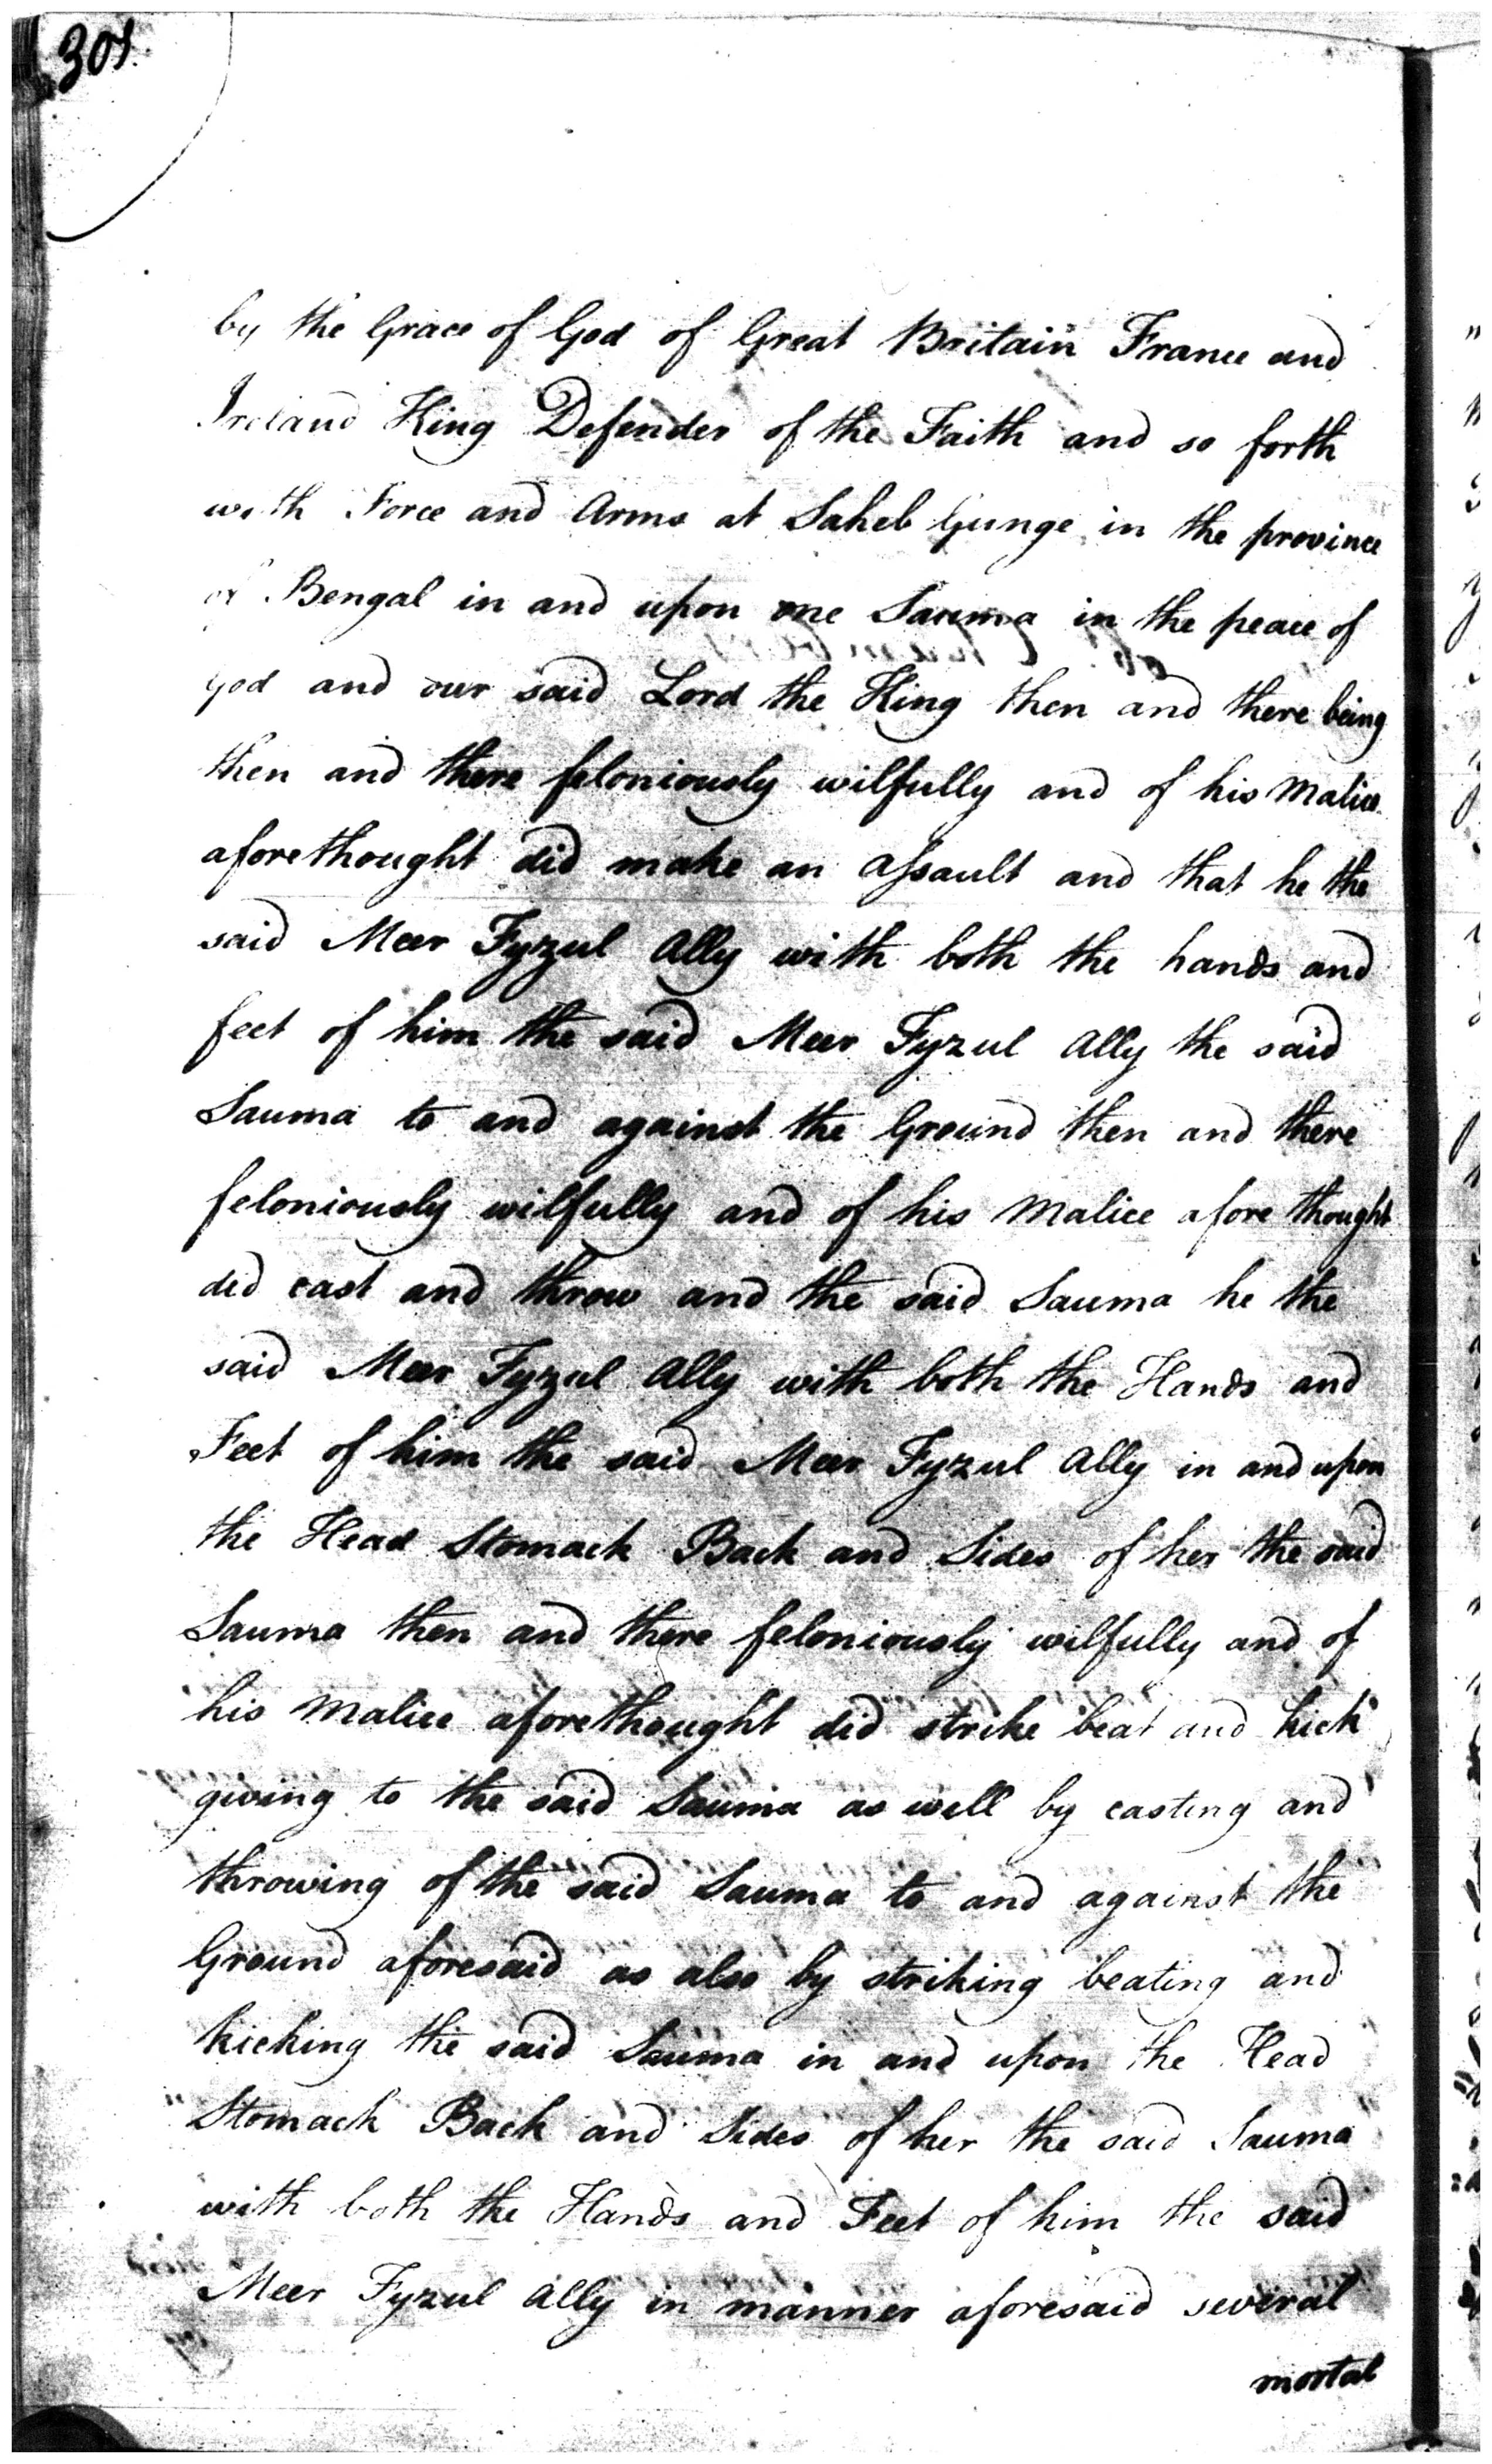 301.
by the Grace of God of Great Britain France and
Ireland King Defender of the Faith and so forth
with Force and Arms at Saheb Gunge in the province
of Bengal in and upon one Sauma in the peace of
God and our said Lord the King then and there being
then and there feloniously wilfully and of his Malice
aforethought did make an assault and that he the
said Meer Fyzul Ally with both the hands and
feet of him the said Meer Fyzul Ally the said
Sauma to and against the Ground then and there
feloniously wilfully and of his Malice afore thought
did cast and throw and the said Sauma he the
said Meer Fyzul Ally with both the Hands and
Feet of him the said Meer Fyzul Ally in and upon
the Head Stomack Back and Sides of her the said
Sauma then and there feloniously wilfully and of
his Malice aforethought did strike beat and kick
giving to the said Sauma as well by casting and
throwing of the said Sauma to and against the
Ground aforesaid as also by striking beating and
kicking the said Sauma in and upon the Head
Stomack Back and Sides of her the said Sauma
with both the Hands and Feet of him the said
Meer Fyzul Ally in manner aforesaid several
mortal